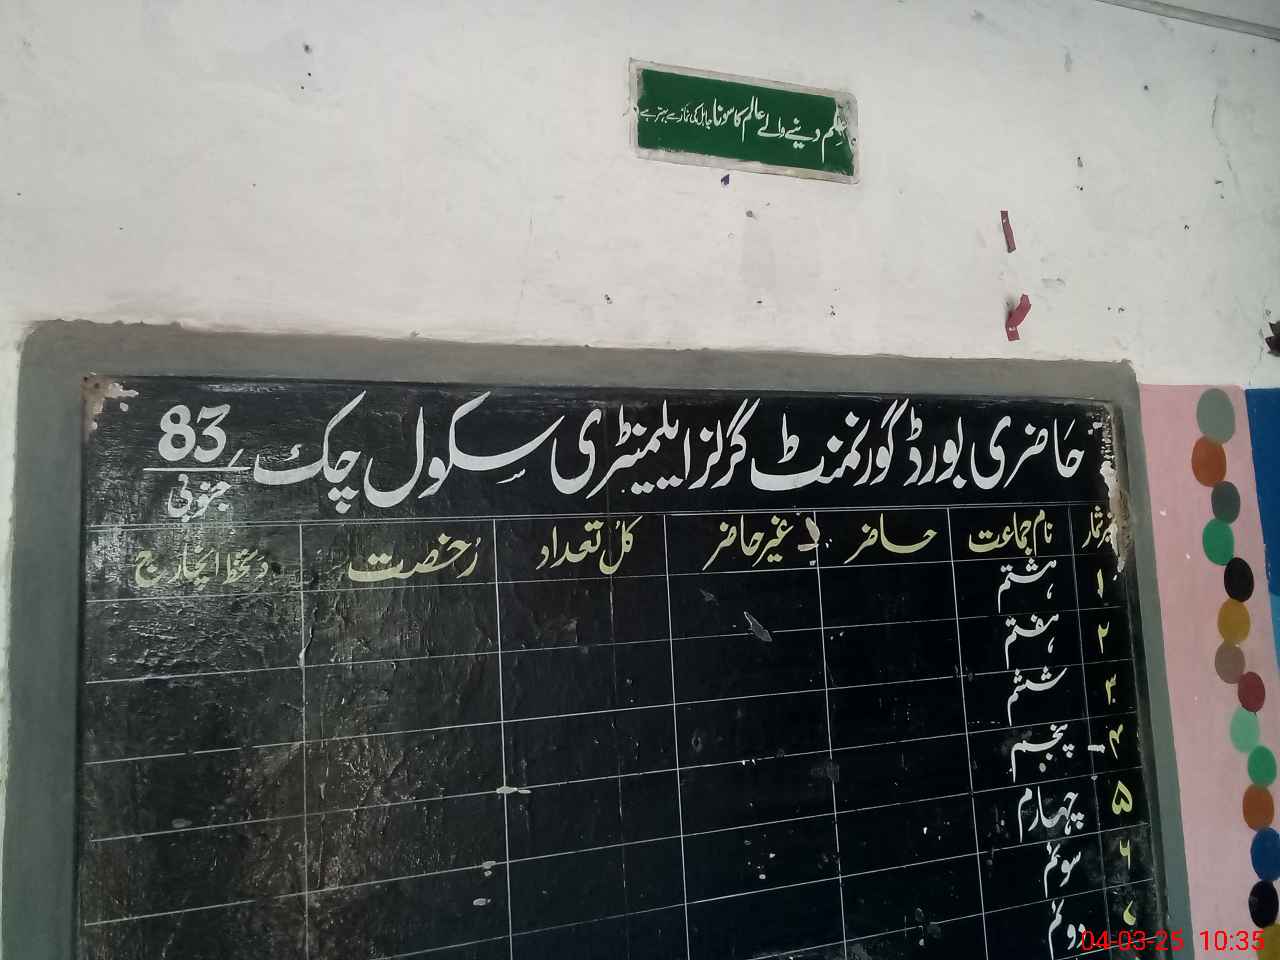 علم دینے والے عالم کا سونا جاہل کی نماز سے بہتر ہے
حاضری بورڈ گورنمنٹ گرلز ایلیمنٹری سکول چک 83 جنوبی
نمبر شمار نام جماعت حاضر غیر حاضر کل تعداد رخصت دستخط انچارج
۱ ہشتم
۲ ہفتم
۳ ششم
۴ پنجم
۵ چہارم
۶ سوئم
۷ دوئم
04-03-25 10:35